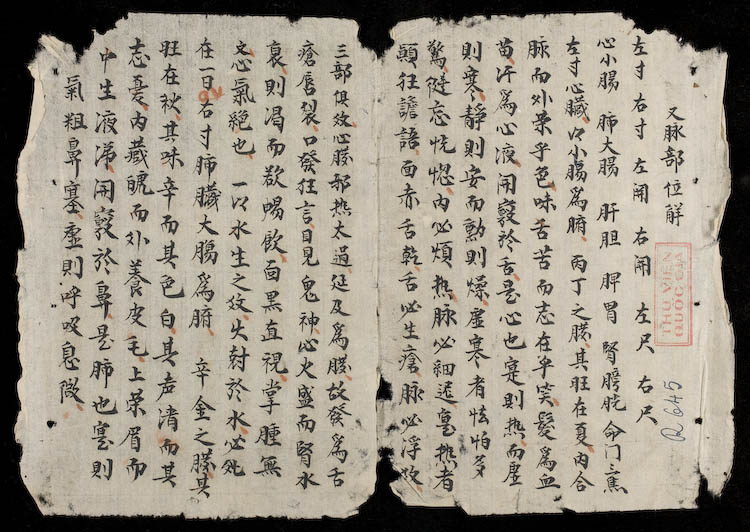 又脉部位觧
左寸 右寸 左関 右関 左尺 右尺
心小腸 肺大腸 肝胆 脾胃 腎膀胱 命门三焦
左寸心臓以小腸為腑 丙丁之臓其旺在夏内合
脉而外栄乎色味舌苦而志在乎笑髪為血
苗汗為心液開竅於舌是心也寔则热而虚
則寒静則安而動則燥虚寒者怯怕多
驚健忘恍惚内必煩热脉必細遅寔热者
顛狂譫語面赤舌乾舌必生瘡脉必浮数
三部俱效心臓邪热太過延及為臓故發為舌
瘡唇裂口發狂言目見鬼神心火盛而腎水
衰則渴而欲喝飲面黒直視掌腫無
文心氣絶也 一以水生之效火尅於水必死
在一日 右寸肺臓大腸爲腑 辛金之臓其
旺在秋其味辛而其色白其声清而其
志憂内藏魄而外養皮毛上栄眉而
中生液涕開竅於鼻是肺也寔則
氣粗鼻塞虚則呼吸息微
THU VIEN
QUOC GIA
R 645